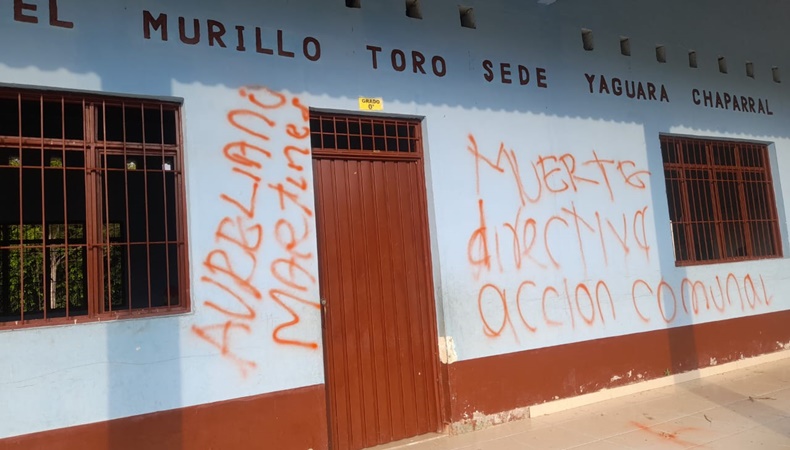 EL MURILLO TORO SEDE YAGUARA CHAPARRAL
GRADO
0°
AURELIANO
MARTINES
MUERTE
directiva
accion comunal